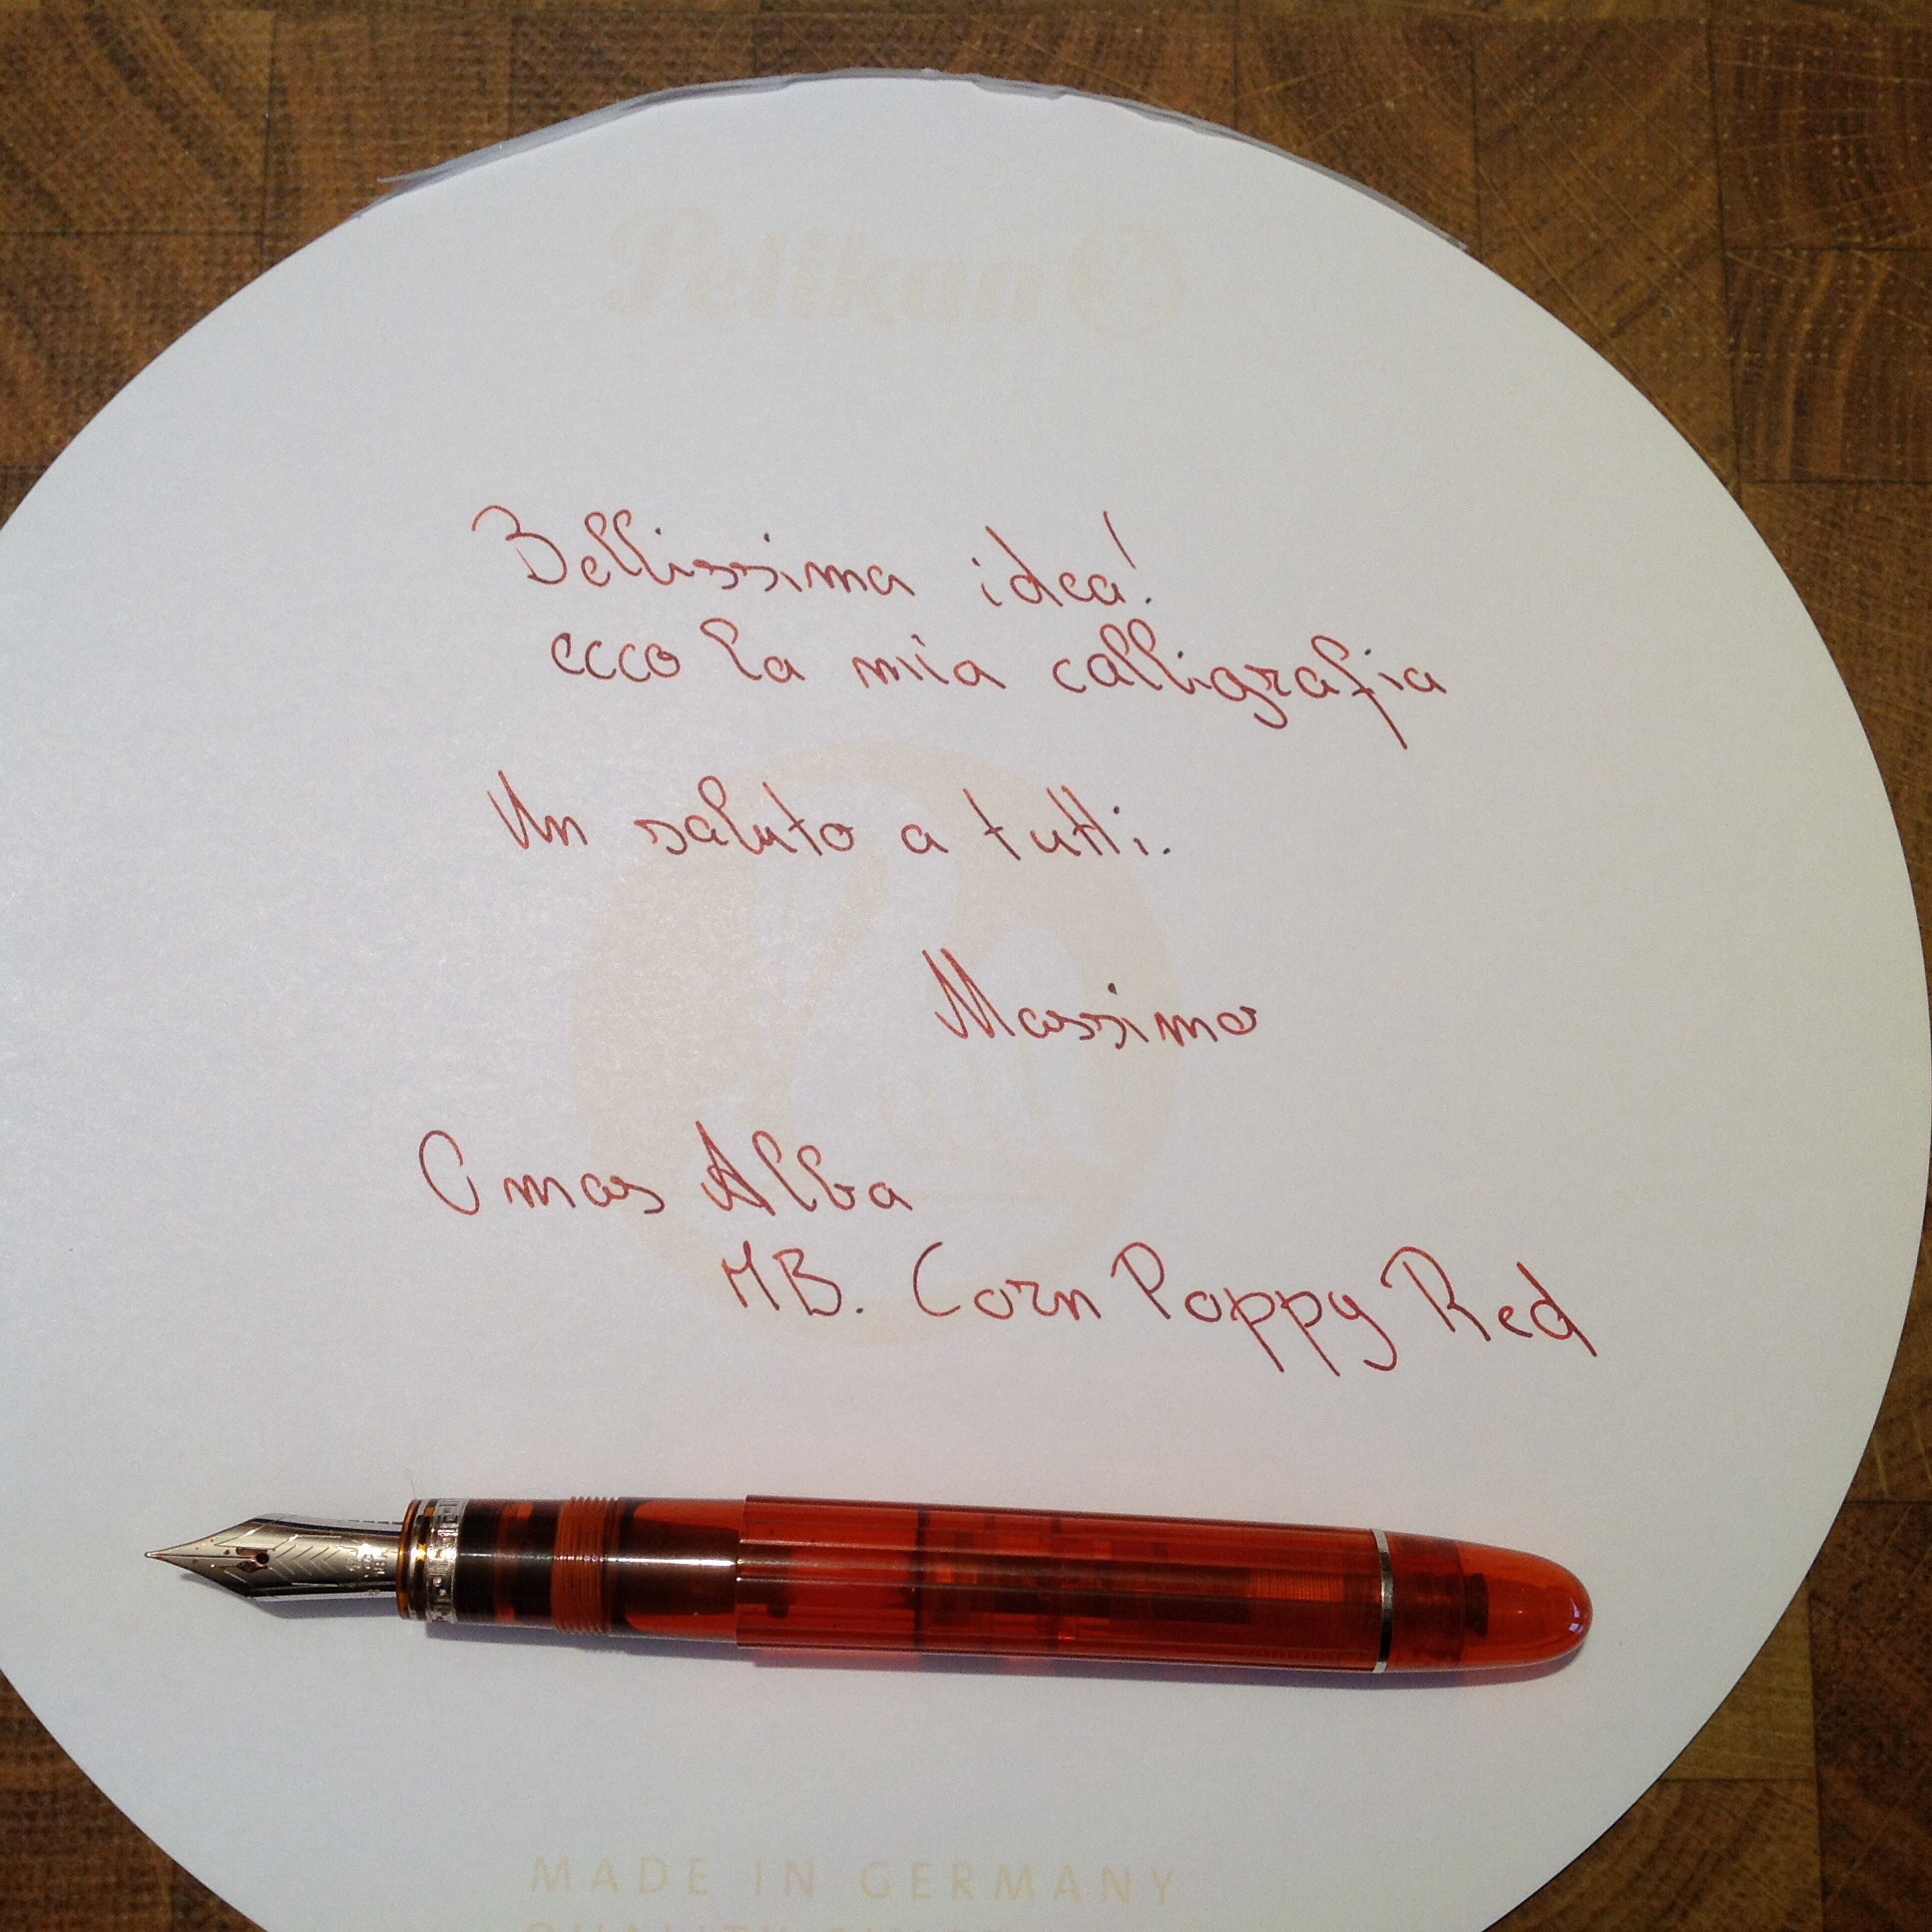 Pelikan
Bellissima idea!
ecco la mia calligrafia
Un saluto a tutti.
Massimo
Omas Alba
MB. Corn Poppy Red
MADE IN GERMANY